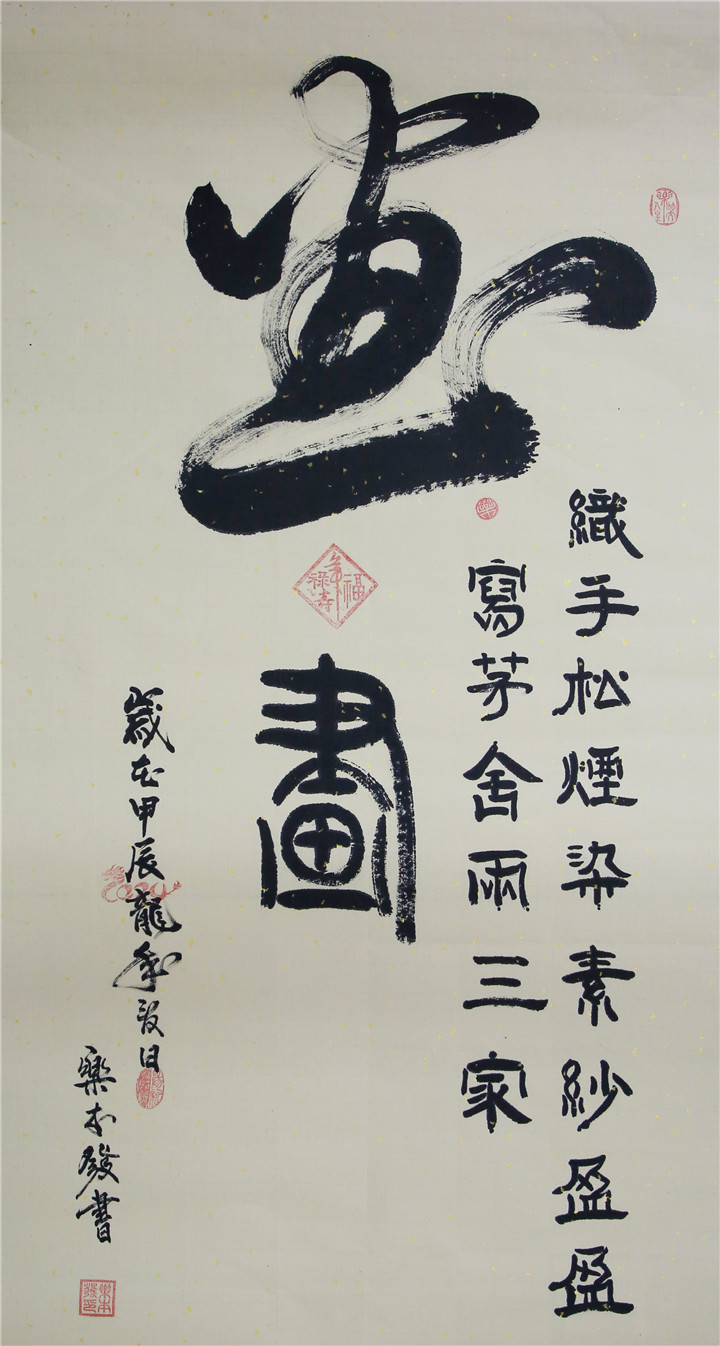 畫
織手松煙染素紗盈盈
寫茅舍兩三家
畫
歲在甲辰龍年日
樂本發書
福祿壽
樂本發印